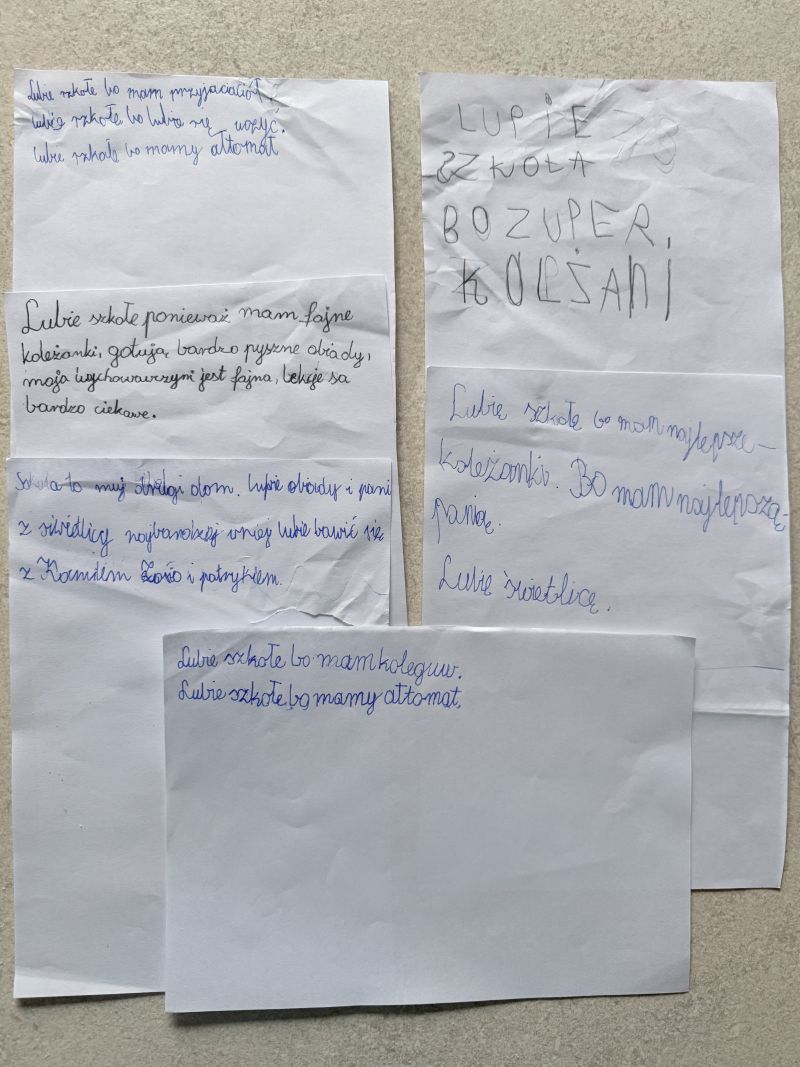 Lubie szkołe bo mam przyjacaciół.
lubię szkołe bo lubie się uczyć.
lubie szkołę bo mamy attomat
LUPIE
SZKOŁA
BO ZUPER,
KOLEŻANI
Lubie szkołe ponieważ mam fajne
koleżanki, gotują bardzo pyszne obiady,
moja wychowawczyni jest fajna, lekcje sa
bardzo ciekawe.
Lubię szkołę bo mam najlepsze
koleżanki. Bo mam najlepszą
panią.
Lubię świetlicę.
Szkoła to muj drugi dom. lubie obiady i pani
z siwetlicy najbardziej wniej lubie bawić się
z Kamilem i patrykiem.
Lubie szkołe bo mam koleguw.
Lubie szkołe bo mamy attomat.